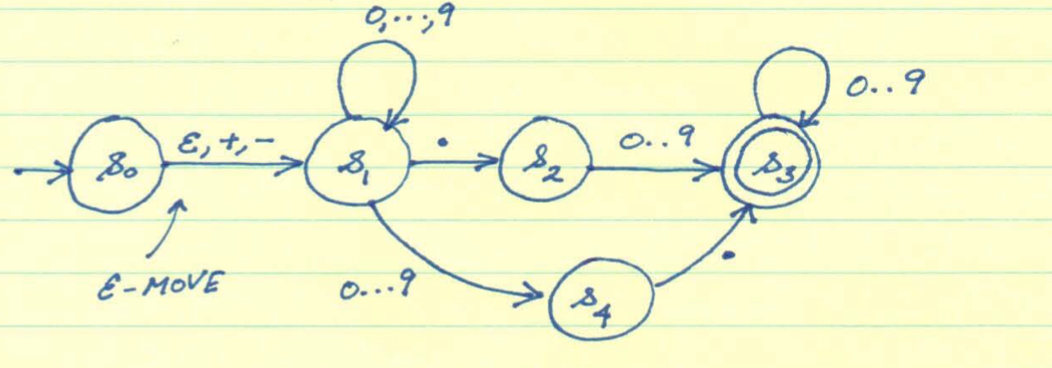 0,...,9
0..9
S0 ε,+,- S1 . S2 0..9 S3
ε-MOVE 0...9 S4 .